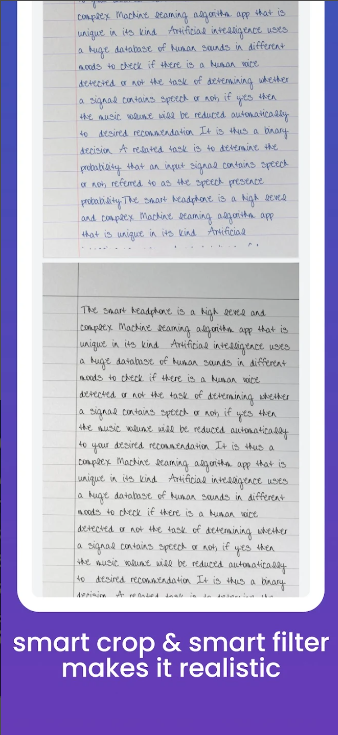 complex Machine learning algorithm app that is
unique in its kind Artificial intelligence uses
a huge database of human sounds in different
moods to check if there is a human voice
detected or not the task of determining whether
a signal contains speech or not, if yes then
the music volume will be reduced automatically
to desired recommendation It is thus a binary
decision A related task is to determine the
probability that an input signal contains speech
or not, referred to as the speech presence
probability The smart headphone is a high level
and complex Machine learning algorithm app
that is unique in its kind Artificial
The smart headphone is a high level and
complex Machine learning algorithm app that is
unique in its kind Artificial intelligence uses
a huge database of human sounds in different
moods to check if there is a human voice
detected or not the task of determining whether
a signal contains speech or not, if yes then
the music volume will be reduced automatically
to your desired recommendation It is thus a
complex Machine learning algorithm app that is
unique in its kind Artificial intelligence uses
a huge database of human sounds in different
moods to check if there is a human voice
detected or not the task of determining whether
a signal contains speech or not, if yes then
the music volume will be reduced automatically
to desired recommendation It is thus a binary
decision A related task is to determine the
smart crop & smart filter
makes it realistic